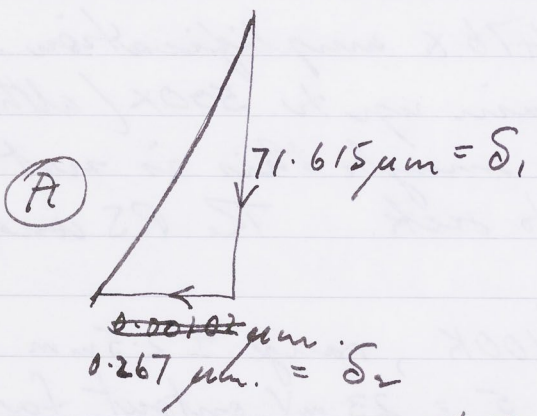 A
71.615 μm = δ₁
0.00102 μm.
0.267 μm. = δ₂